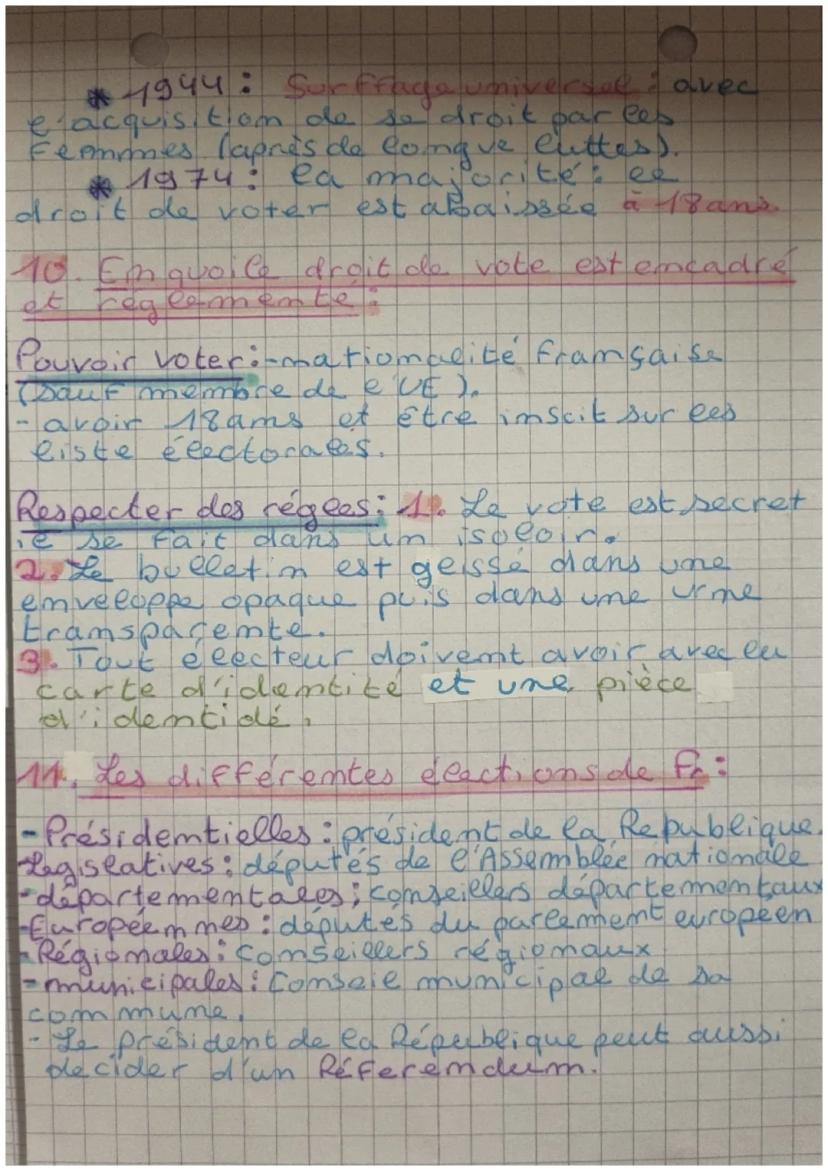 * 1944 : Surffrage universel : avec
l'acquisition de se droit par les
Femmes (après de longue luttes).
* 1974 : la majorité : le
droit de voter est abaissée à 18 ans
10. En quoi le droit de vote est encadré
et réglementé :
Pouvoir voter : - nationalité française
(sauf membre de l'UE).
- avoir 18 ans et être inscit sur les
liste électorales.
Respecter des régles : 1. Le vote est secret
il se fait dans un isoloir.
2. Le bulletin est geissé dans une
enveloppe opaque puis dans une urne
transparente.
3. Tout électeur doivent avoir avec lui
carte d'identité et une pièce
d'identidé.
11. Les différentes élections de Fr :
- Présidentielles : président de la République.
- Législatives : députés de l'Assemblée nationale
- départementales : conseillers départementaux
- Européennes : députés du parlement européen
- Régionales : conseillers régionaux
- municipales : Conseil municipal de sa
commune.
- Le président de la République peut aussi
décider d'un Référendum.